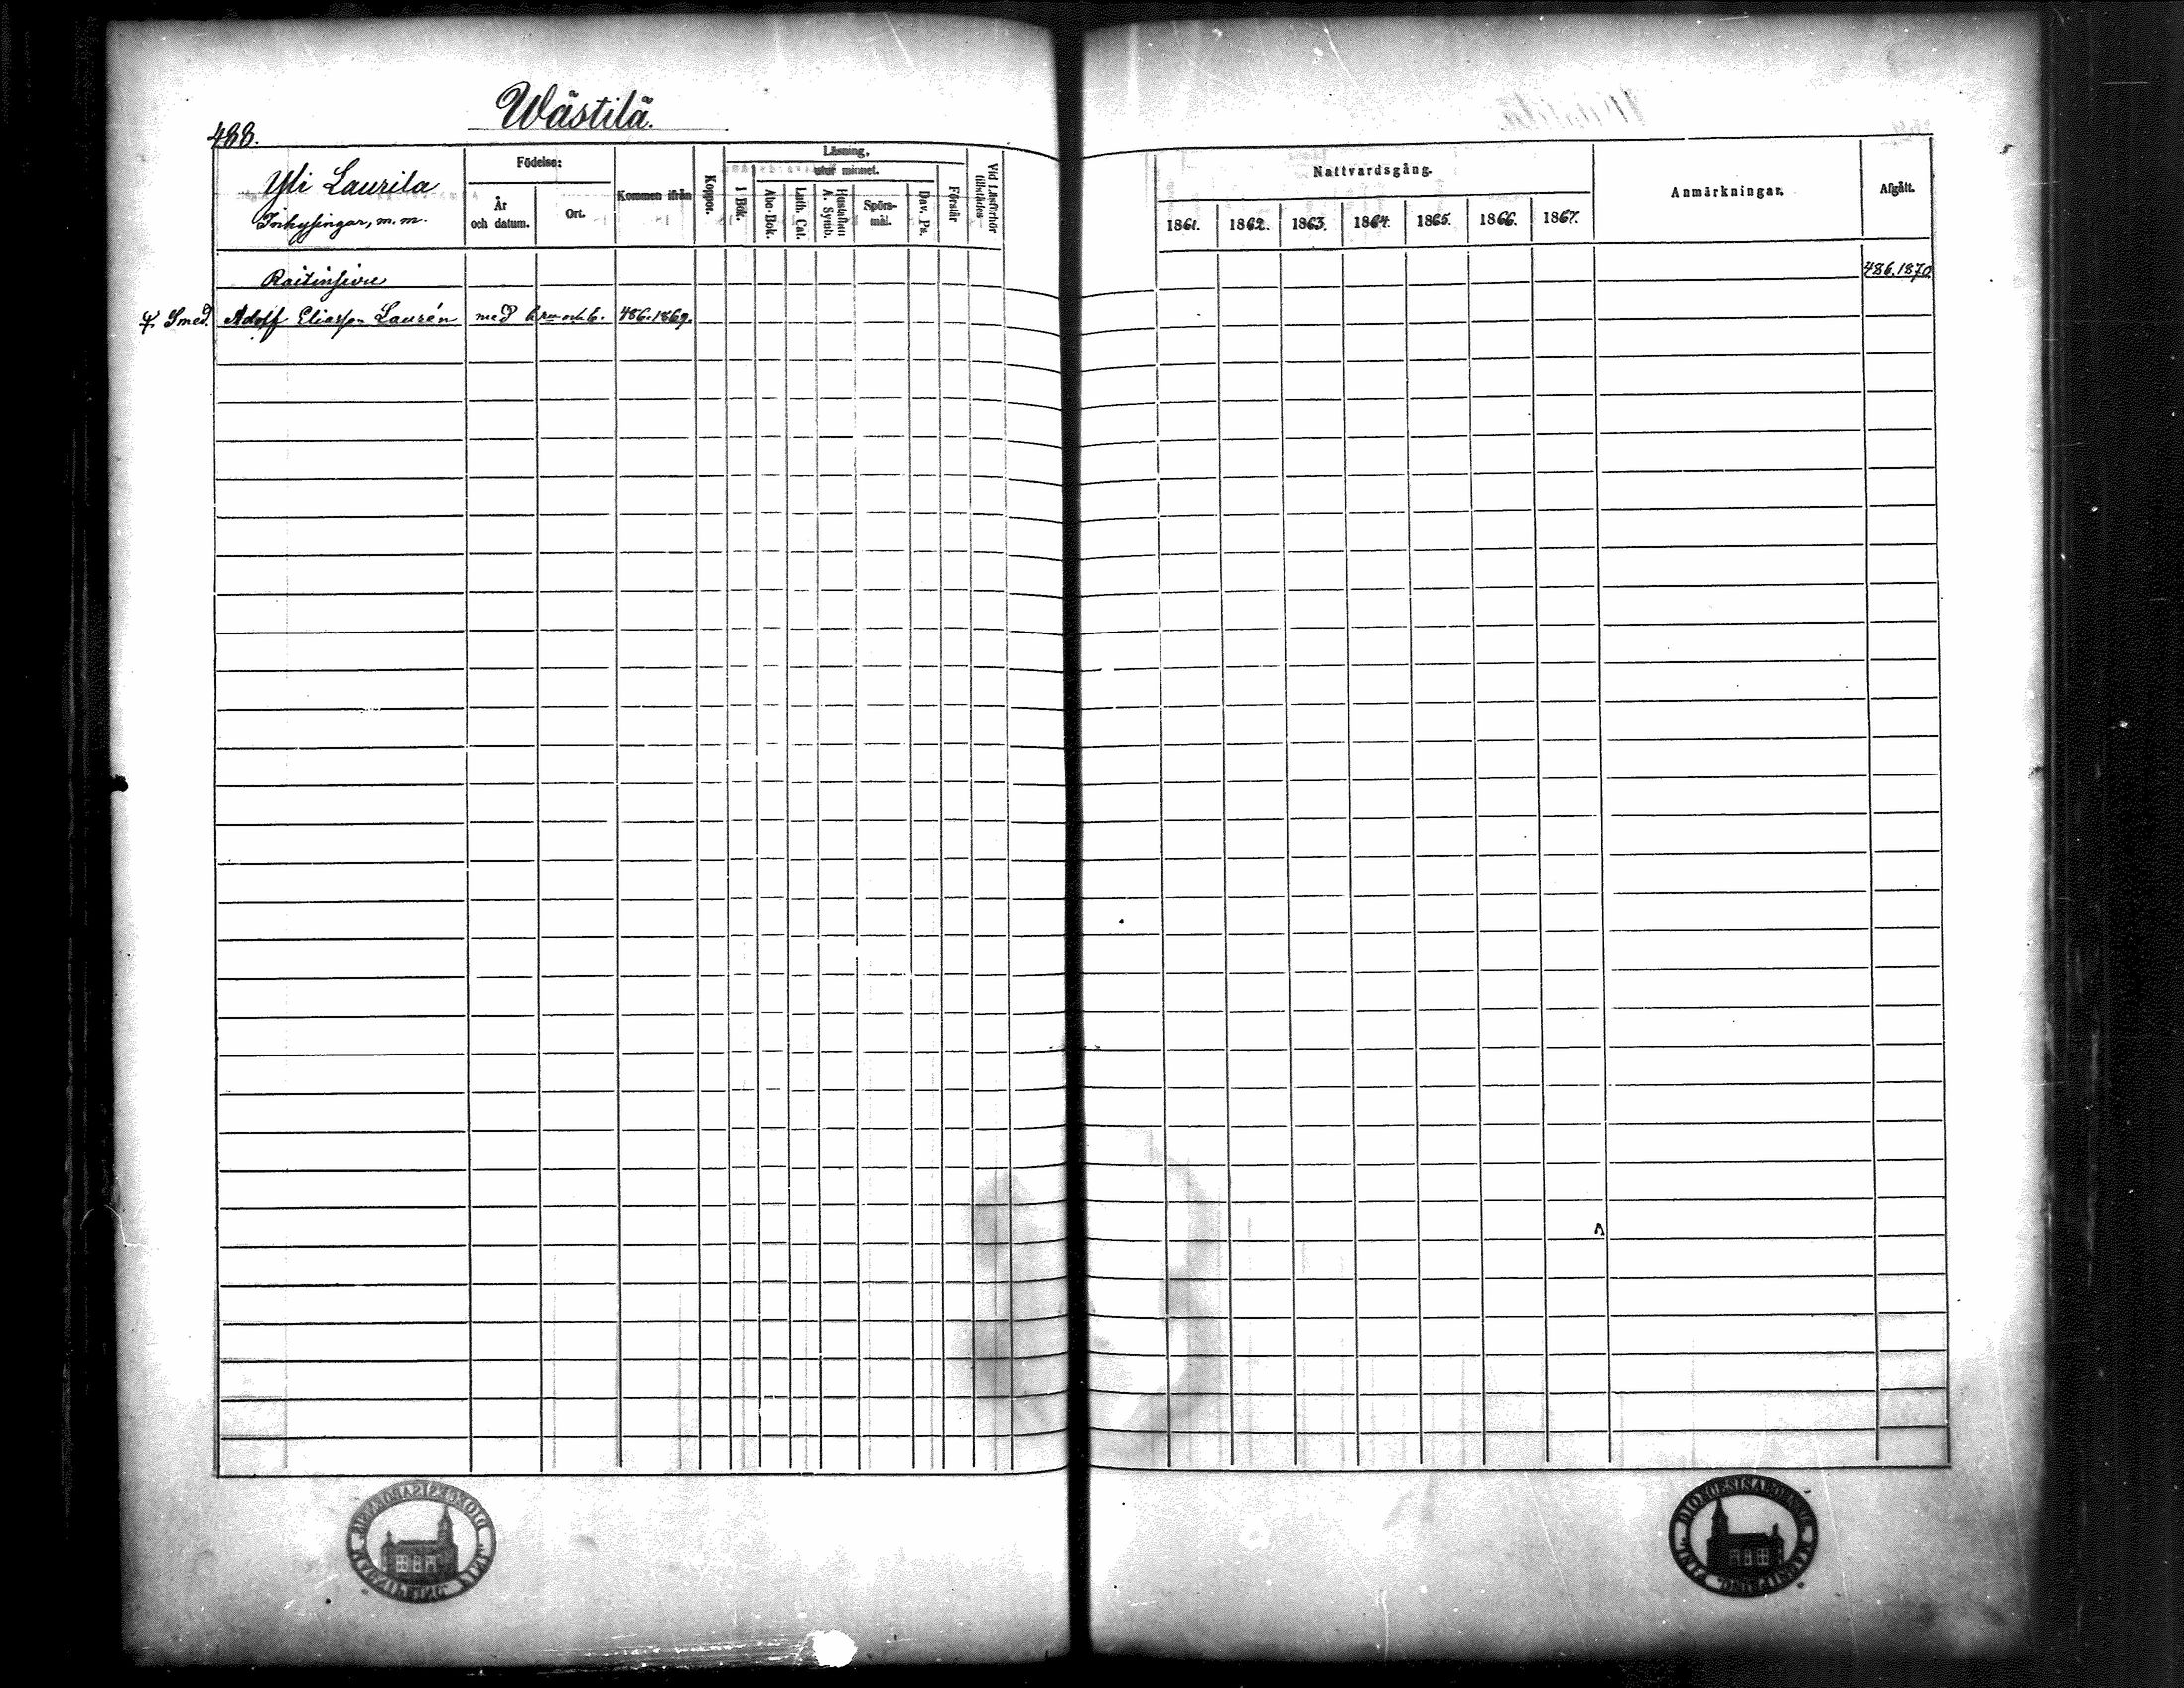 Wästilä.
488.
Yli Laurila
Inhysingar, m. m.
Födelse:
År
och datum.
Ort.
Kommen ifrån
Koppor.
Läsning,
utur minnet.
I Bok.
Abc-Bok.
Luth. Cat.
Hustaflan
A. Symb.
Spörs-
mål.
Dav. Ps.
Förstår
Vid Läsförhör
tillstädes
Nattvardsgång.
1861.
1862.
1863.
1864.
1865.
1866.
1867.
Anmärkningar.
Afgått.
486.1870
Smed. Adolf Eliasson Laurén med och b. 486.1869.